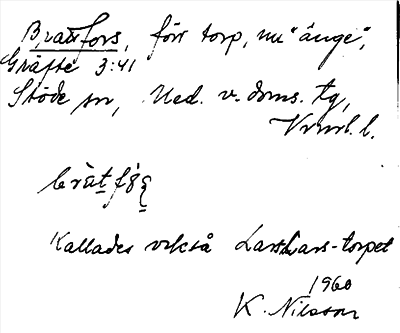 Brattfors, förr torp, nu "änge",
Gräfte 3:41
Stöde sn, Med. v. doms. tg,
Vrnrl. l.
Kallades också Larslars-torpet
1960
K. Nilsson